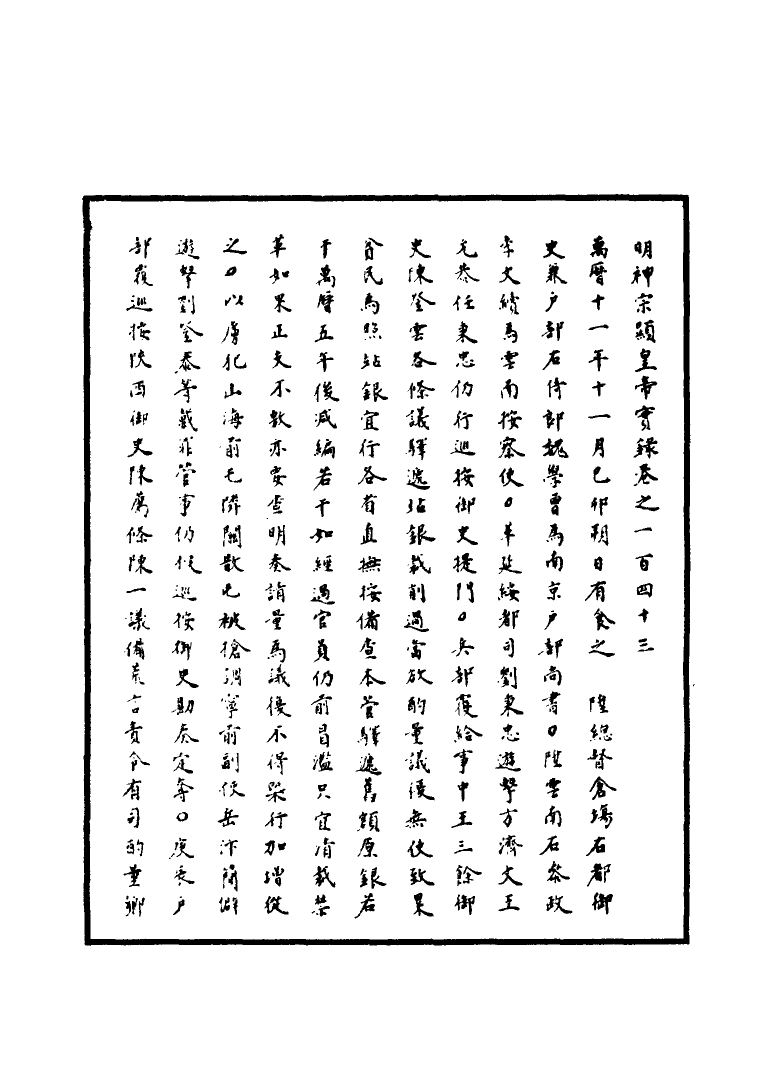 明神宗顯皇帝實錄卷之一百四十三
萬曆十一年十一月己卯朔日有食之　陞總督倉塲右都御
史兼户部右侍郎魏學曾爲南京户部尚書〇陞雲南右參政
李文續爲雲南按察使〇革延綏都司劉秉忠遊擊方濟文王
允泰任秉忠仍行巡按御史提問〇兵部覆給事中王三餘御
史陳登雲各條議驛遞站銀裁削過當欲酌量議復無使致累
貧民馬照站銀宜行各省直撫按備查本管驛遞舊額原銀若
干萬曆五年後減編若干如經過官員仍前冒濫只宜清裁禁
革如果正支不敷亦要查明奏請量爲議復不得槩行加增從
之〇以虜犯山海前屯隣關散屯被搶調寧前副使岳汴簡僻
遊擊劉登泰等戴罪管事仍候巡按御史勘奏定奪〇庚辰户
部覆巡按陝西御史陳薦條陳一議備荒言責令有司酌量鄉